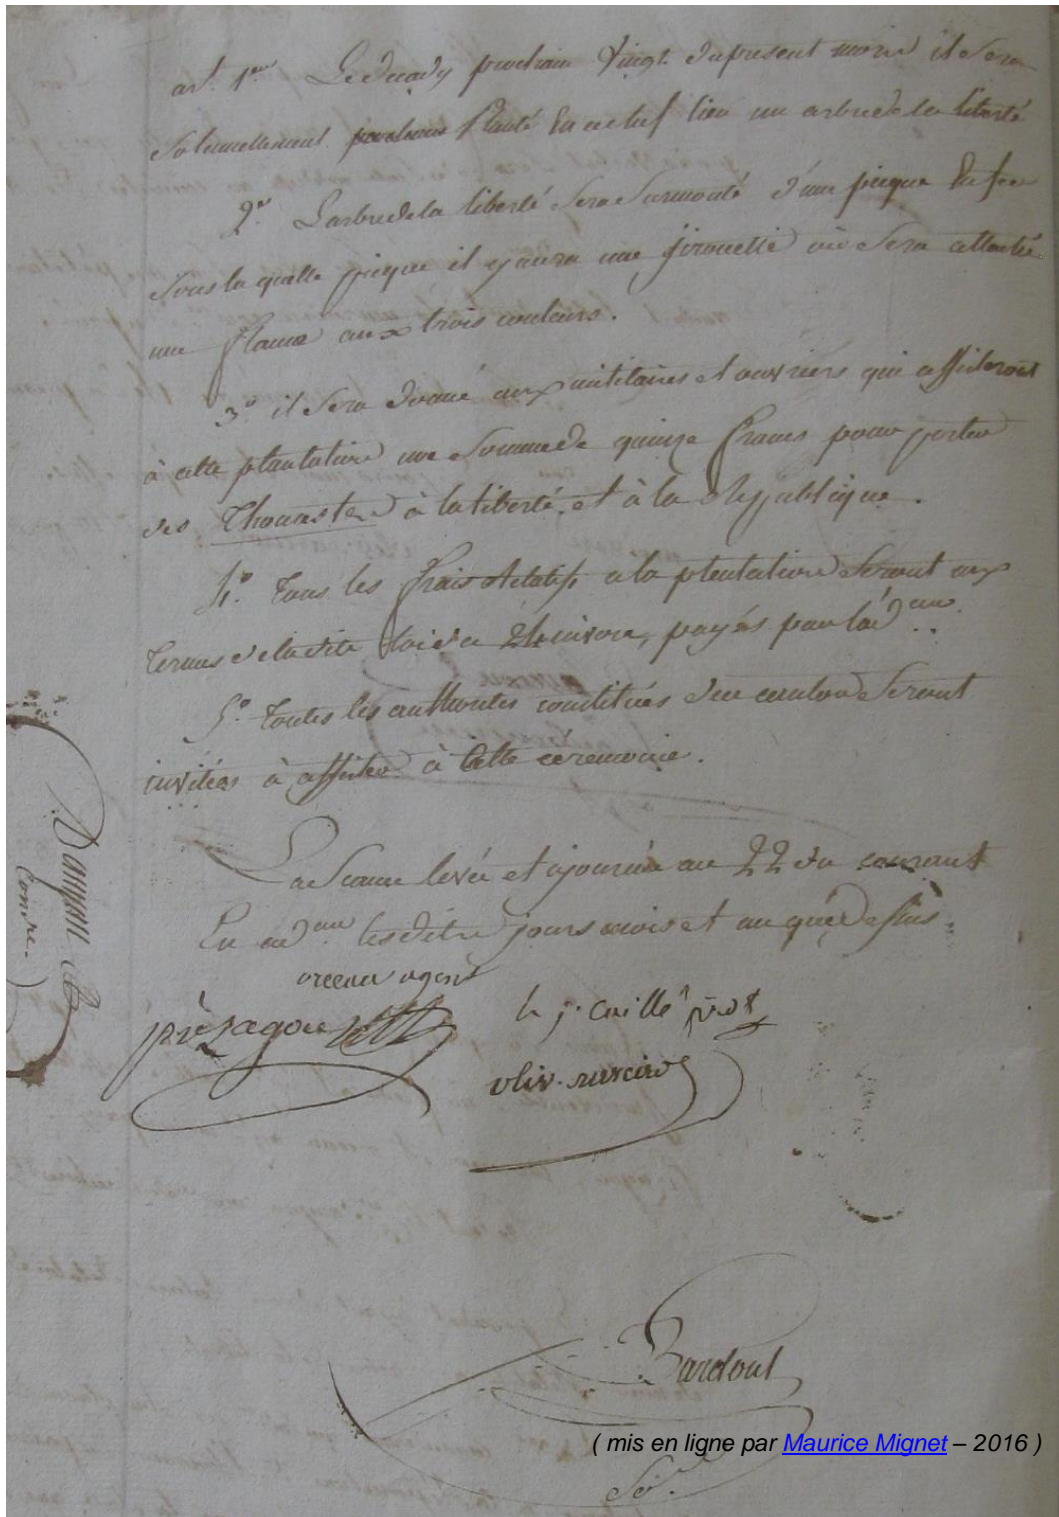 art. 1er Le decady prochain vingt du present mois il sera
solemnellement planté en ce chef lieu un arbre de la liberté
2° L'arbre de la liberté sera surmonté d'une picque en fer
sous la quelle picque il y aura une girouette où sera attaché
une flame aux trois couleurs.
3° il sera donné aux militaires et ouvriers qui assisteront
à cette plantation une somme de quinze francs pour porter
des Thoasts à la liberté, et à la Republique.
4° tous les frais relatifs a la plantation seront aux
termes de la dite loi du 24 nivose, payés par l'ad.on
5° toutes les authorités constitués du canton seront
invitées à assister à cette céremonie.
La séance levée et ajournée au 22 du courant
En ad.on les dits jours mois et an que dessus.
agent
h j. caille pdt
oliv.
Bardoul
( mis en ligne par Maurice Mignet – 2016 )